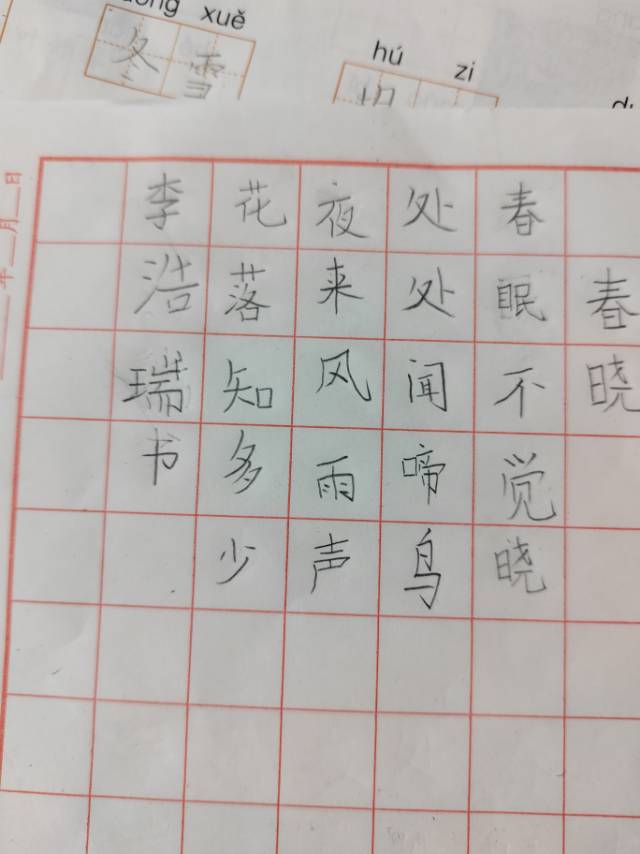 xuě
冬雪
hú zi
春晓
春眠不觉晓
处处闻啼鸟
夜来风雨声
花落知多少
李浩瑞书
年 月 日